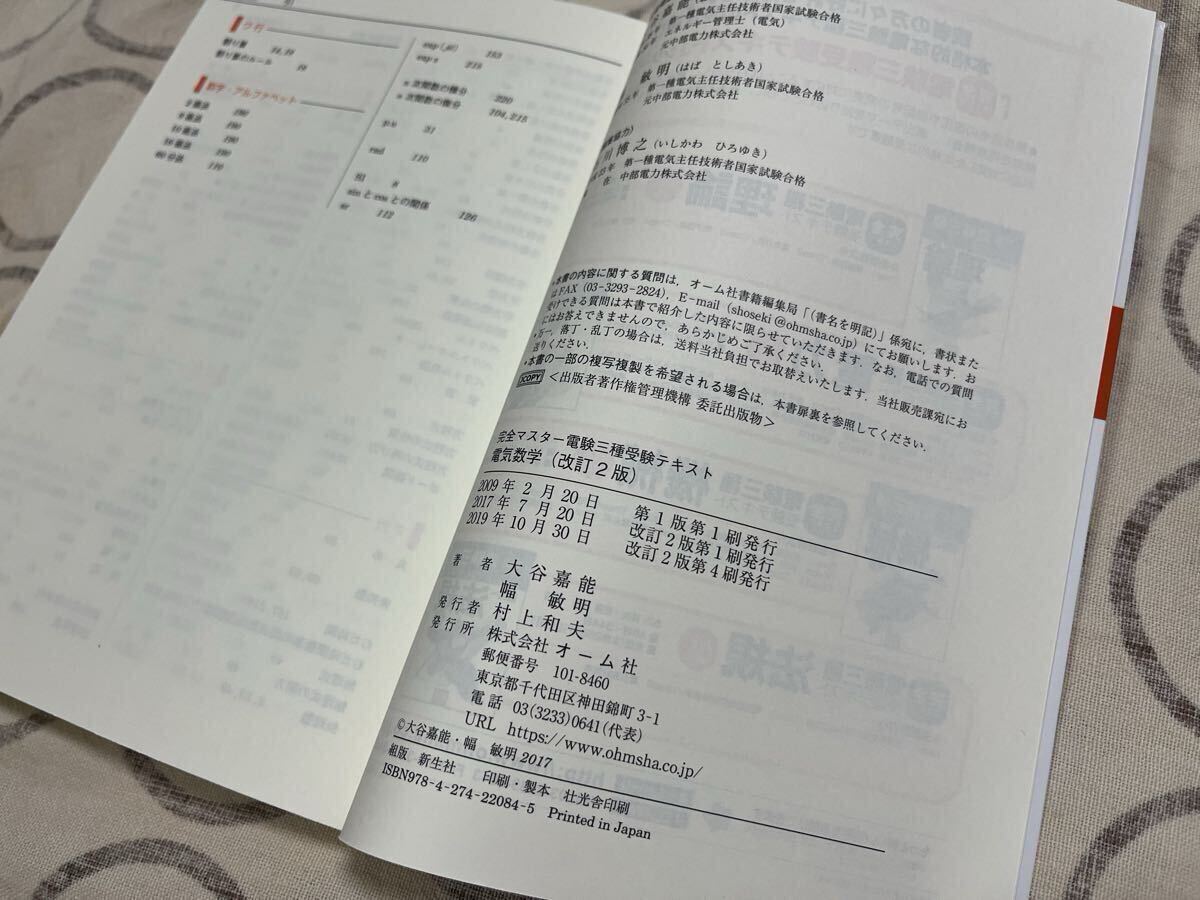 ラ行
割り算
割り算のルール
数字・アルファベット
2進法 190
8進法 190
10進法 190
16進法 190
60分法 110
n次関数の微分 220
n次関数の積分 204, 215
rad 110
sinとcosとの関係 126
sr 112
第一種電気主任技術者国家試験合格
エネルギー管理士(電気)
元中部電力株式会社
敏明(はば としあき)
第一種電気主任技術者国家試験合格
元中部電力株式会社
川博之(いしかわ ひろゆき)
第一種電気主任技術者国家試験合格
在 中部電力株式会社
•本書の内容に関する質問は,オーム社書籍編集局「(書名を明記)」係宛に,書状また
はFAX(03-3293-2824),E-mail(shoseki@ohmsha.co.jp)にてお願いします.お
受けできる質問は本書で紹介した内容に限らせていただきます.なお,電話での質問
にはお答えできませんので,あらかじめご了承ください.
•万一,落丁・乱丁の場合は,送料当社負担でお取替えいたします.当社販売課宛にお
送りください.
•本書の一部の複写複製を希望される場合は,本書扉裏を参照してください.
JCOPY <出版者著作権管理機構 委託出版物>
完全マスター電験三種受験テキスト
電気数学(改訂2版)
2009年 2月20日 第1版第1刷発行
2017年 7月20日 改訂2版第1刷発行
2019年10月30日 改訂2版第4刷発行
著者 大谷嘉能
幅 敏明
発行者 村上和夫
発行所 株式会社 オーム社
郵便番号 101-8460
東京都千代田区神田錦町3-1
電話 03(3233)0641(代表)
URL https://www.ohmsha.co.jp/
©大谷嘉能・幅 敏明 2017
組版 新生社 印刷・製本 壮光舎印刷
ISBN978-4-274-22084-5 Printed in Japan